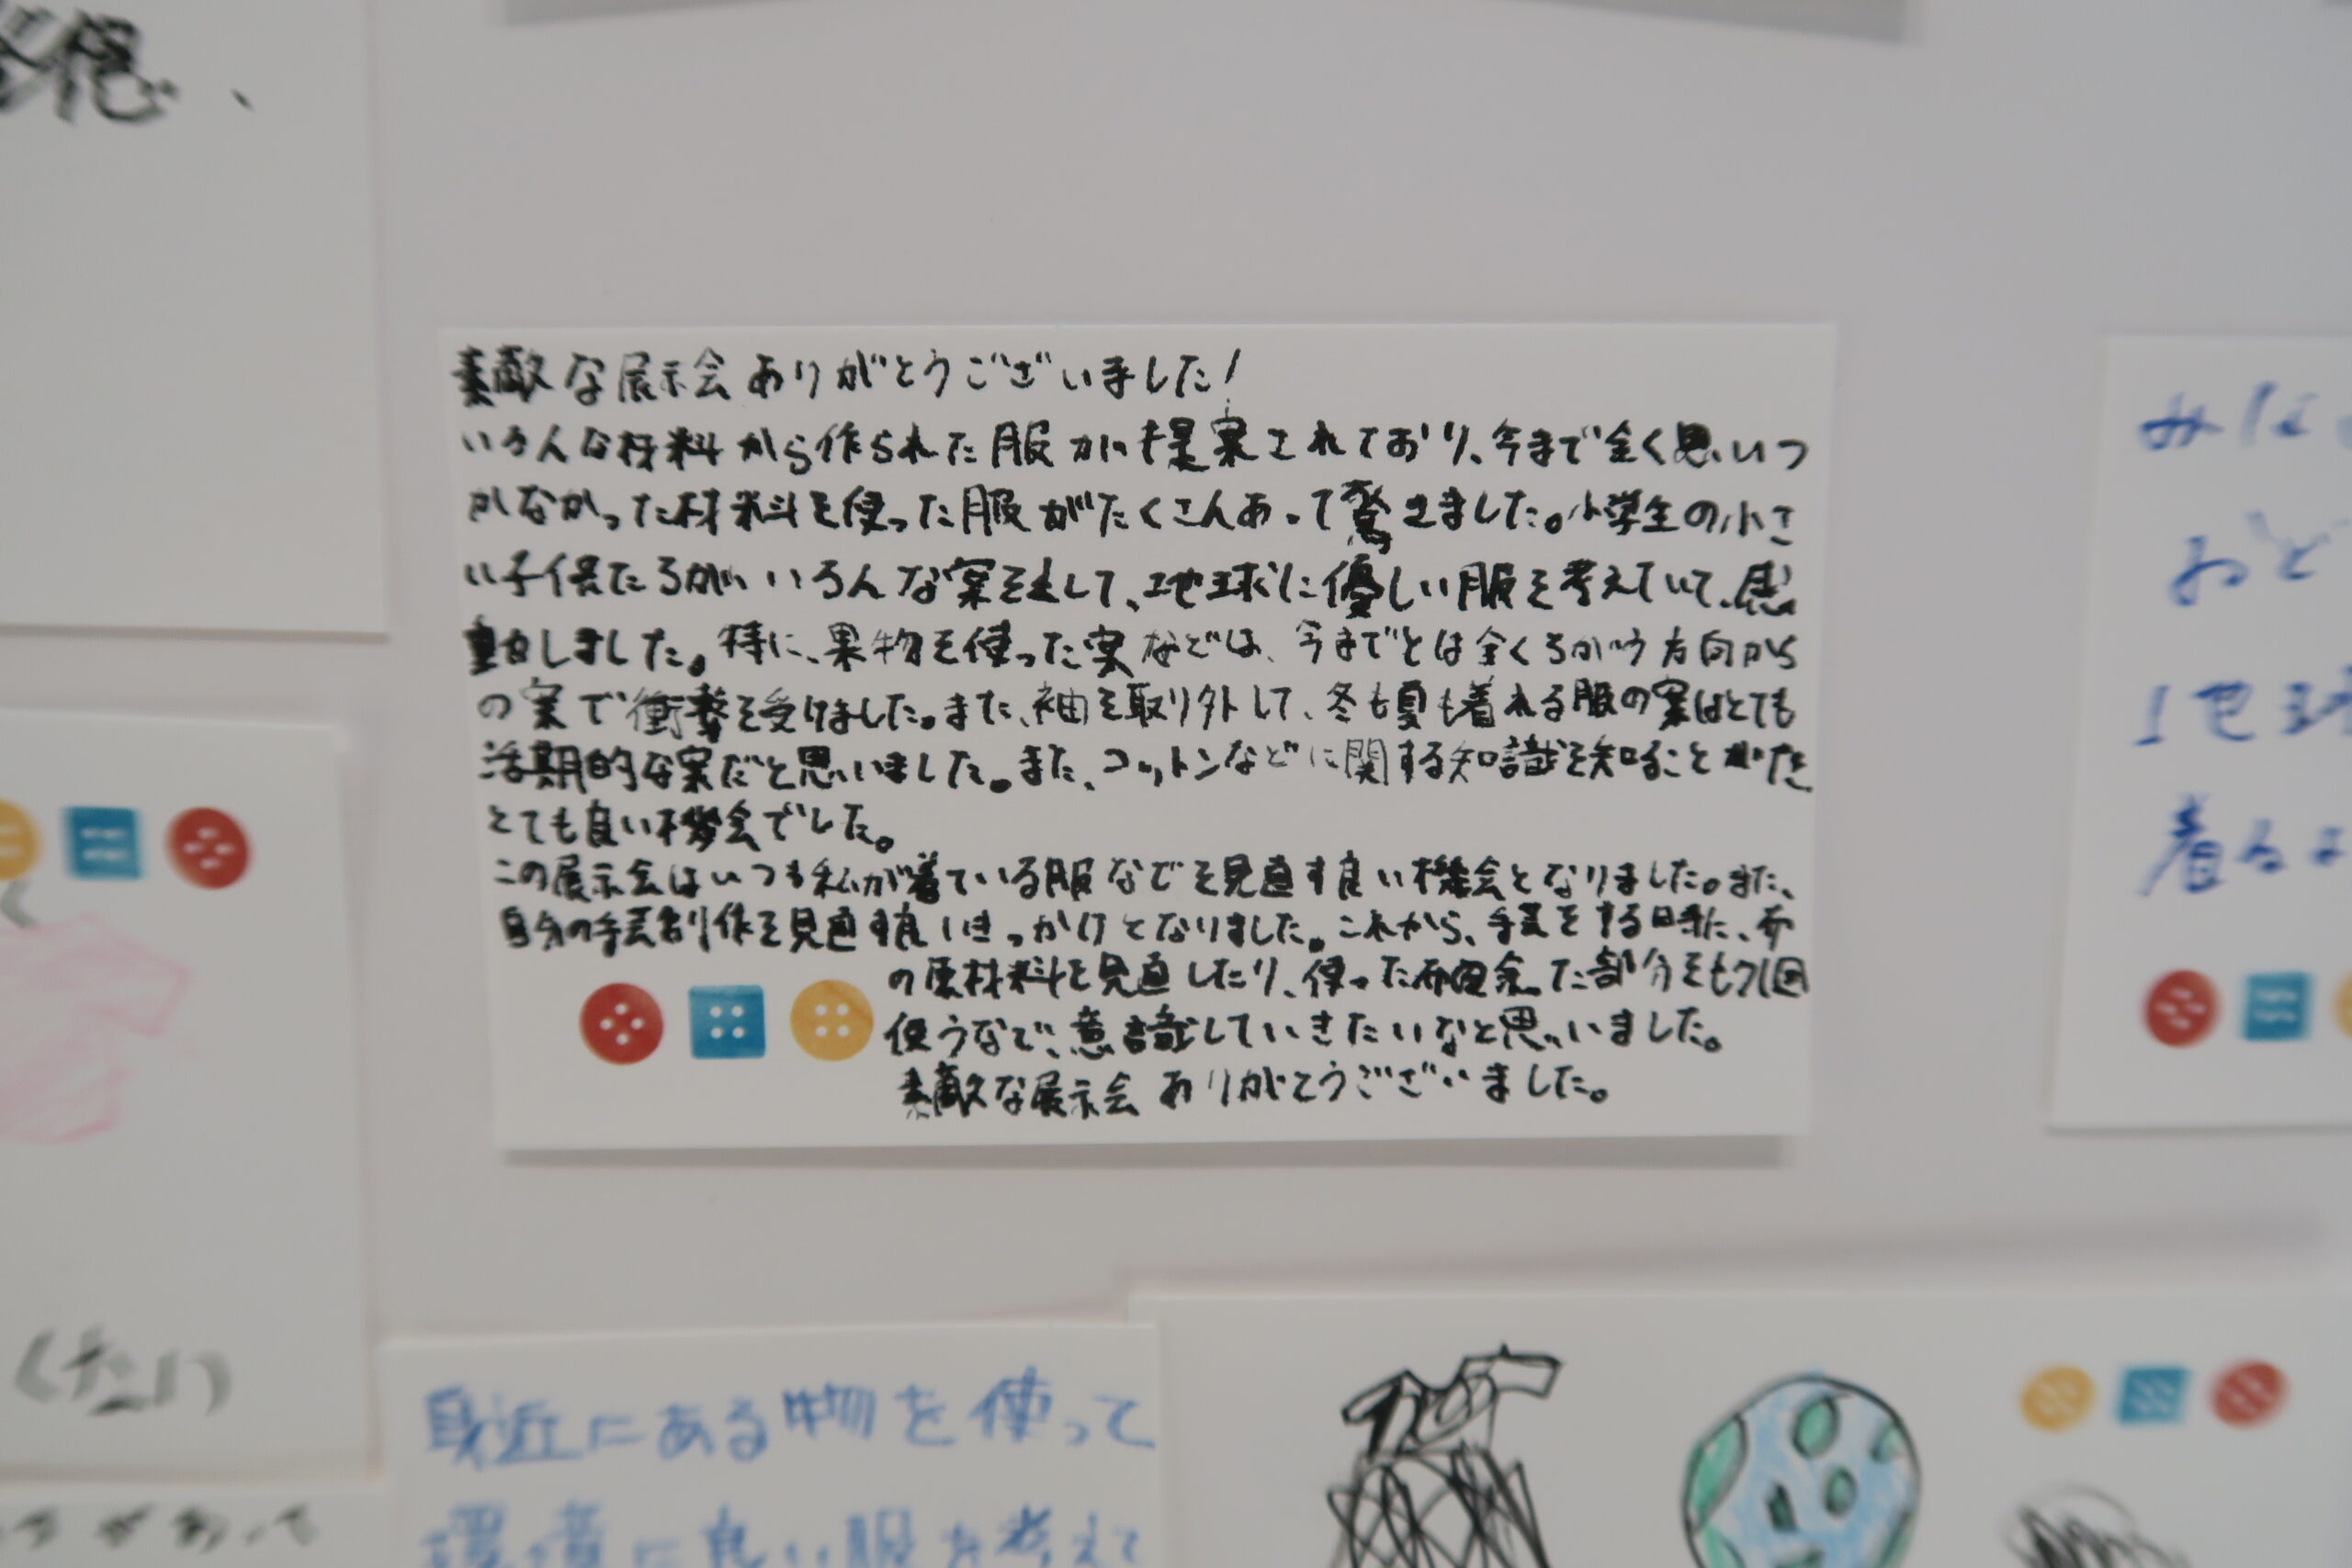 素敵な展示会ありがとうございました!
いろんな材料から作られた服が提案されており、今まで全く思いつ
かなかった材料を使った服がたくさんあって驚きました。小学生の小さ
い子供たちが、いろんな案を出して、地球に優しい服を考えていて、感
動しました。特に、果物を使った案などは、今までとは全くちがう方向から
の案で衝撃を受けました。また、袖を取り外して、冬も夏も着れる服の案はとても
活期的な案だと思いました。また、コットンなどに関する知識を知ることができ
とても良い機会でした。
この展示会はいつも私が着ている服などを見直す良い機会となりました。また、
自分の手芸創作を見直す良いきっかけとなりました。これから、手芸をする時に、布
の原材料を見直したり、使った布の余った部分をもう1回
使うなど、意識していきたいなと思いました。
素敵な展示会ありがとうございました。
みな
おど
地球
着るよ
くたい
があって
身近にある物を使って
環境に良い服を考えて